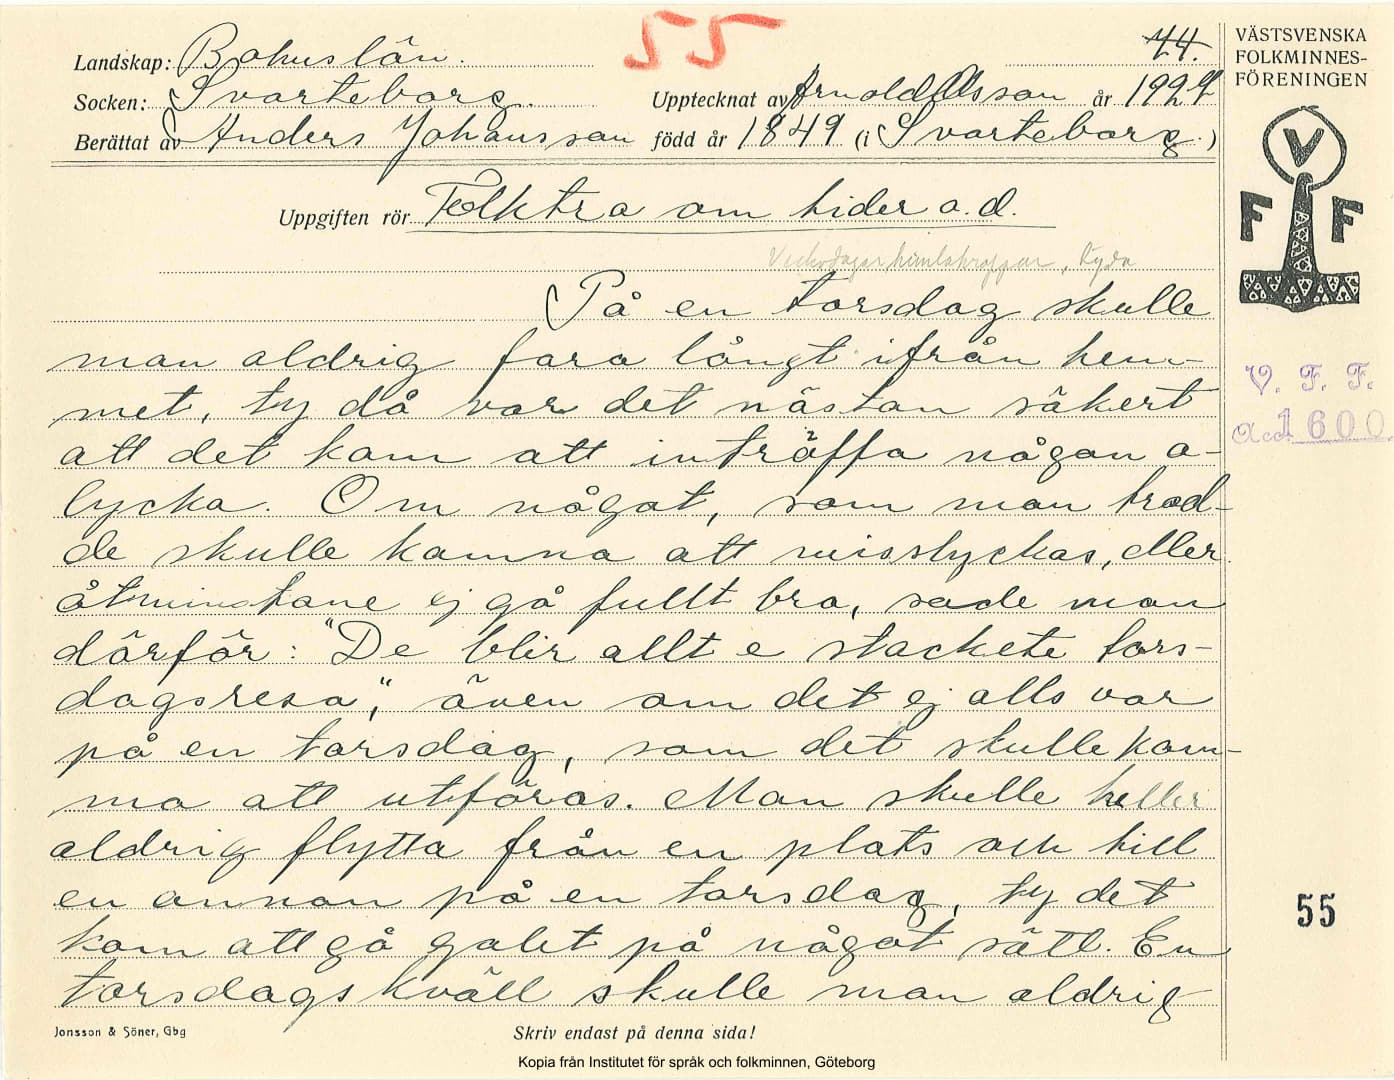 55
44.
Landskap: Bohuslän.
Socken: Svarteborg. Upptecknat av Arnold Olsson år 1924
Berättat av Anders Johansson född år 1849 (i Svarteborg.)
Uppgiften rör Folktro om tider o.d.
Veckodagar, himlakroppar,
På en torsdag skulle
man aldrig fara långt ifrån hem-
met, ty då var det nästan säkert
att det kom att inträffa någon o-
lycka. Om något, som man trod-
de skulle komma att misslyckas, eller
åtminstone ej gå fullt bra, sade man
därför: "De blir allt e stackete tors-
dagsresa", även om det ej alls var
på en torsdag, som det skulle kom-
ma att utföras. Man skulle heller
aldrig flytta från en plats och till
en annan på en torsdag, ty det
kom att gå galet på något sätt. En
torsdagskväll skulle man aldrig
Jonsson & Söner, Gbg
Skriv endast på denna sida!
Kopia från Institutet för språk och folkminnen, Göteborg
VÄSTSVENSKA
FOLKMINNES-
FÖRENINGEN
V
F F
V. F. F.
Acc 1600
55